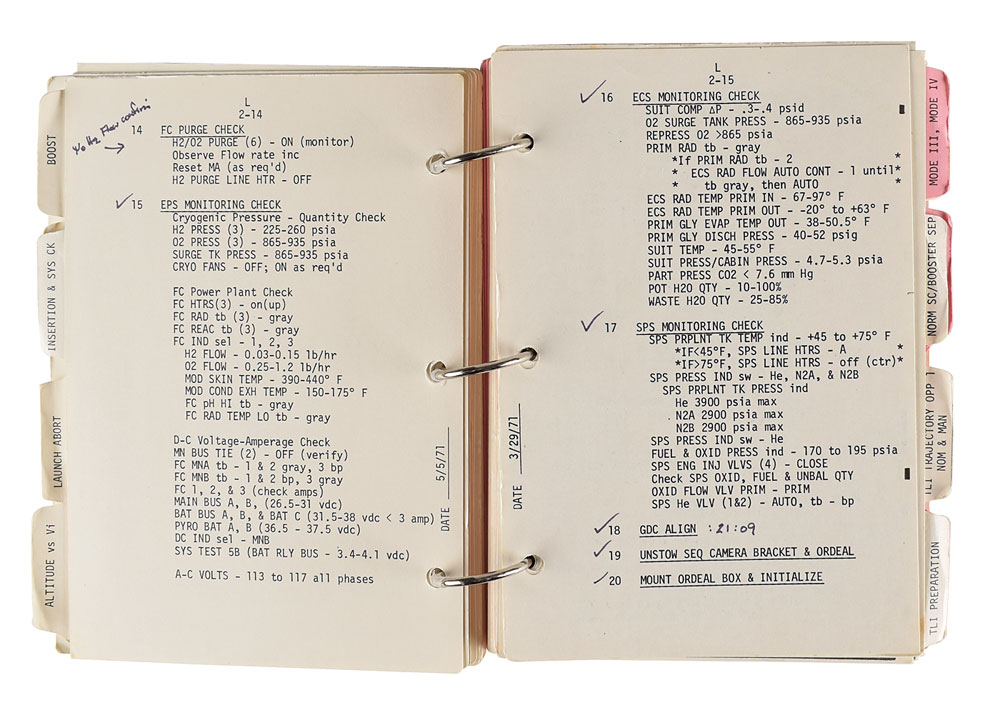 L
2-14
14 FC PURGE CHECK
H2/O2 PURGE (6) - ON (monitor)
Observe Flow rate inc
Reset MA (as req'd)
H2 PURGE LINE HTR - OFF
✓ 15 EPS MONITORING CHECK
Cryogenic Pressure - Quantity Check
H2 PRESS (3) - 225-260 psia
O2 PRESS (3) - 865-935 psia
SURGE TK PRESS - 865-935 psia
CRYO FANS - OFF; ON as req'd
FC Power Plant Check
FC HTRS(3) - on(up)
FC RAD tb (3) - gray
FC REAC tb (3) - gray
FC IND sel - 1, 2, 3
H2 FLOW - 0.03-0.15 lb/hr
O2 FLOW - 0.25-1.2 lb/hr
MOD SKIN TEMP - 390-440° F
MOD COND EXH TEMP - 150-175° F
FC pH HI tb - gray
FC RAD TEMP LO tb - gray
D-C Voltage-Amperage Check
MN BUS TIE (2) - OFF (verify)
FC MNA tb - 1 & 2 gray, 3 bp
FC MNB tb - 1 & 2 bp, 3 gray
FC 1, 2, & 3 (check amps)
MAIN BUS A, B, (26.5-31 vdc)
BAT BUS A, B, & BAT C (31.5-38 vdc < 3 amp)
PYRO BAT A, B (36.5 - 37.5 vdc)
DC IND sel - MNB
SYS TEST 5B (BAT RLY BUS - 3.4-4.1 vdc)
A-C VOLTS - 113 to 117 all phases
DATE 5/5/71
BOOST
INSERTION & SYS CK
LAUNCH ABORT
ALTITUDE vs Vi
L
2-15
✓ 16 ECS MONITORING CHECK
SUIT COMP ΔP - .3-.4 psid
O2 SURGE TANK PRESS - 865-935 psia
REPRESS O2 >865 psia
PRIM RAD tb - gray
*If PRIM RAD tb - 2 *
* ECS RAD FLOW AUTO CONT - 1 until*
* tb gray, then AUTO *
ECS RAD TEMP PRIM IN - 67-97° F
ECS RAD TEMP PRIM OUT - -20° to +63° F
PRIM GLY EVAP TEMP OUT - 38-50.5° F
PRIM GLY DISCH PRESS - 40-52 psig
SUIT TEMP - 45-55° F
SUIT PRESS/CABIN PRESS - 4.7-5.3 psia
PART PRESS CO2 < 7.6 mm Hg
POT H2O QTY - 10-100%
WASTE H2O QTY - 25-85%
✓ 17 SPS MONITORING CHECK
SPS PRPLNT TK TEMP ind - +45 to +75° F
*IF<45°F, SPS LINE HTRS - A *
*IF>75°F, SPS LINE HTRS - off (ctr)*
SPS PRESS IND sw - He, N2A, & N2B
SPS PRPLNT TK PRESS ind
He 3900 psia max
N2A 2900 psia max
N2B 2900 psia max
SPS PRESS IND sw - He
FUEL & OXID PRESS ind - 170 to 195 psia
SPS ENG INJ VLVS (4) - CLOSE
Check SPS OXID, FUEL & UNBAL QTY
OXID FLOW VLV PRIM - PRIM
SPS He VLV (1&2) - AUTO, tb - bp
✓ 18 GDC ALIGN :21:09
✓ 19 UNSTOW SEQ CAMERA BRACKET & ORDEAL
✓ 20 MOUNT ORDEAL BOX & INITIALIZE
DATE 3/29/71
MODE III, MODE IV
NORM SC/BOOSTER SEP
TLI TRAJECTORY OPP 1
NOM & MAN
TLI PREPARATION